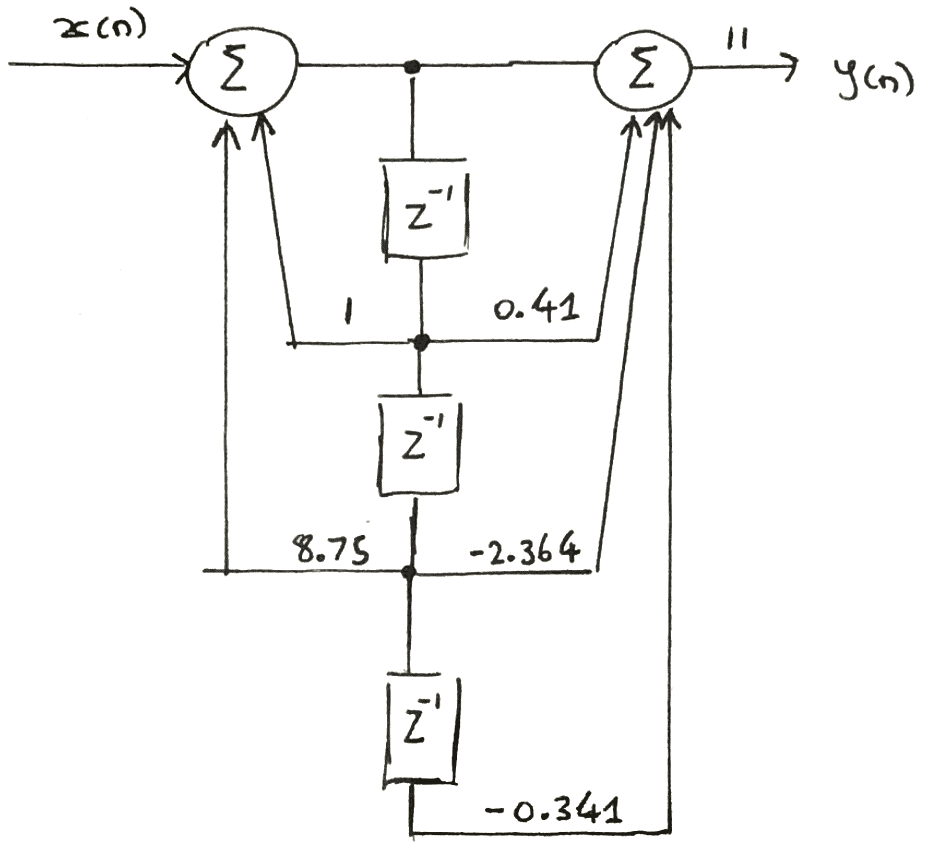 x(n)
Σ
Σ
11
y(n)
z⁻¹
1
0.41
z⁻¹
8.75
-2.364
z⁻¹
-0.341